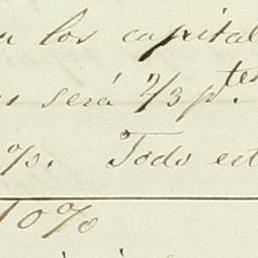 los capital
será 2/3 ptes.
%. Todo est
10%